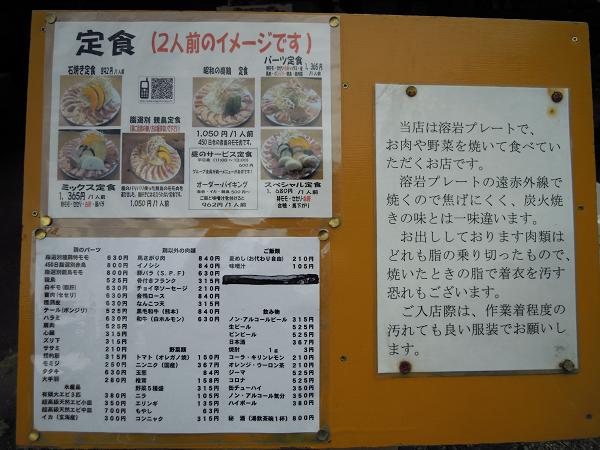 定食 (2人前のイメージです)
石焼き定食 842円/1人前
昭和の廃鶏 定食
パーツ定食
1,365円/1人前
脂選別 親鳥定食
1,050円/1人前
450日令の
昼のサービス定食
平日昼(11:00~15:00)
600円
オーダーバイキング
962円/1人前
ミックス定食
1,365円/1人前
1,050円/1人前
スペシャル定食
1,680円/1人前
鶏のパーツ
脂選別種鶏特モモ 630円
450日脂選別赤鳥 630円
脂選別親鳥モモ 630円
親鳥 525円
白ギモ(脂肝) 630円
首肉(セセリ) 630円
種鶏皮 525円
テール(ボンジリ) 525円
ハラミ 630円
背肉 525円
心臓 315円
ズリ下 315円
ササミ 210円
モミジ 250円
タタキ 630円
大手羽 280円
水産品
有頭大エビ3匹 380円
超高級天然エビ小皿
超高級天然エビ中皿 700円
イカ(玄海産) 300円
鶏以外の肉類
馬さがり肉 840円
イノシシ 840円
豚バラ(S.P.F) 630円
骨付きフランク 315円
チョイ辛ソーセージ 210円
合鴨ロース 840円
なんこつ天 315円
黒毛和牛(熊本) 840円
和牛(白ホルモン) 630円
野菜類
トマト(オレガノ焼) 150円
ニンニク(国産) 367円
玉葱 84円
椎茸 158円
野菜5種盛 315円
ニラ 105円
エリンギ 105円
もやし 63円
コンニャク 315円
ご飯類
麦めし(お代わり自由) 210円
味噌汁 105円
飲み物
ノン・アルコールビール 315円
生ビール 525円
ビンビール 525円
日本酒 367円
焼酎 1g 3円
コーラ・キリンレモン 210円
オレンジ・ウーロン茶 210円
ジーマ 525円
コロナ 525円
缶チューハイ 350円
ノン・アルコール気分 350円
ハイボール 380円
秘 酒(湯飲茶碗1杯) 800円
当店は溶岩プレートで、
お肉や野菜を焼いて食べてい
ただくお店です。
溶岩プレートの遠赤外線で
焼くので焦げにくく、炭火焼
きの味とは一味違います。
お出ししております肉類は
どれも脂の乗り切ったもので、
焼いたときの脂で着衣を汚す
恐れもございます。
ご入店際は、作業着程度の
汚れても良い服装でお願いし
ます。